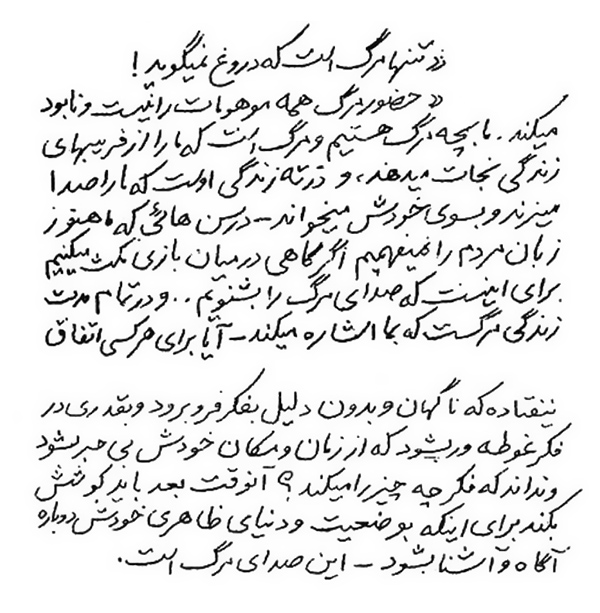 « تنها مرگ است که دروغ نمیگوید !
« حضور مرگ همه موهومات را نیست و نابود
میکند . ما بچه مرگ هستیم و مرگ است که ما را از فریبهای
زندگی نجات میدهند ، و در ته زندگی اوست که ما را صدا
میزند و بسوی خودش میخواند – در سن هائی که ما هنوز
زبان مردم را نمیفهمیم اگر گاهی در میان بازی مکث میکنیم
برای اینست که صدای مرگ را بشنویم . . و در تمام مدت
زندگی مرگست که بما اشاره میکند – آیا برای هر کسی اتفاق
نیفتاده که ناگهان و بدون دلیل بفکر فرو برود و بقدری در
فکر غوطه ور بشود که از زمان و مکان خودش بی خبر بشود
و نداند که فکر چه چیز را میکند ؟ آنوقت بعد باید کوشش
بکند برای اینکه بوضعیت و دنیای ظاهری خودش دوباره
آگاه و آشنا بشود – این صدای مرگ است .